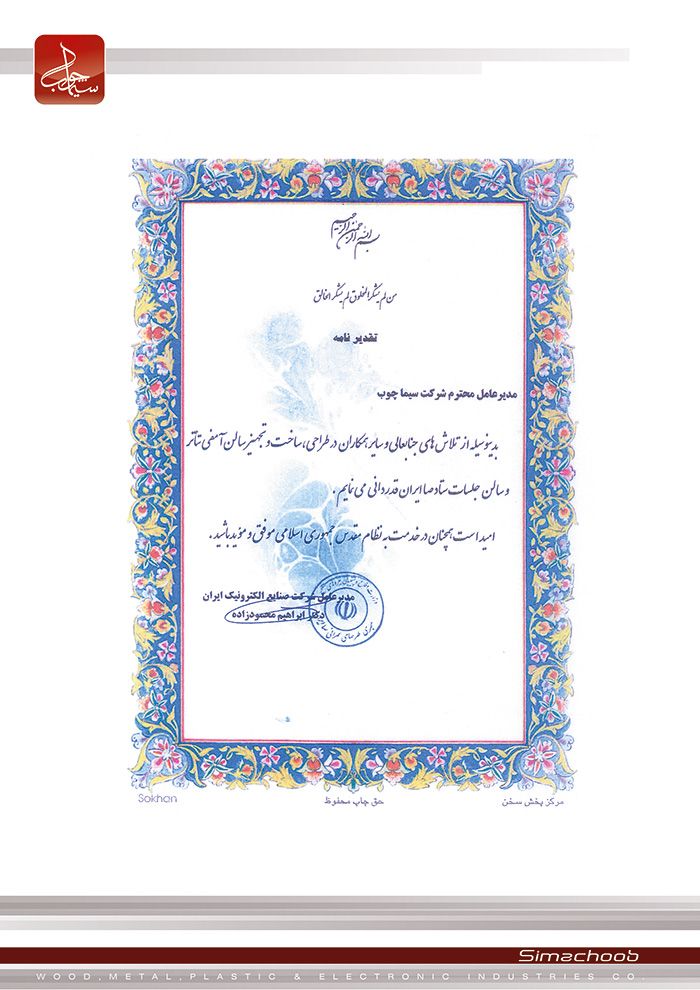 سیماچوب
بسم الله الرحمن الرحیم
من لم یشکر المخلوق لم یشکر الخالق
تقدیر نامه
مدیرعامل محترم شرکت سیما چوب
بدینوسیله از تلاش های جنابعالی و سایر همکاران در طراحی، ساخت و تجهیز سالن آمفی تئاتر
و سالن جلسات ستاد صاایران قدردانی می نمایم .
امید است همچنان در خدمت به نظام مقدس جمهوری اسلامی موفق و مؤید باشید .
مدیرعامل شرکت صنایع الکترونیک ایران
دکتر ابراهیم محمودزاده
Sokhan
حق چاپ محفوظ
مرکز پخش سخن
Simachoob
WOOD,METAL,PLASTIC & ELECTRONIC INDUSTRIES CO.